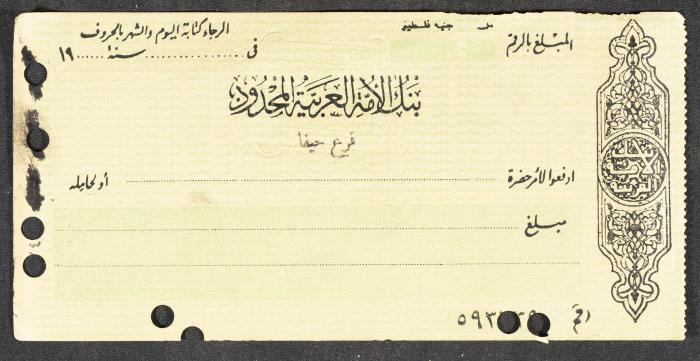 الرجاء كتابة اليوم والشهر بالحروف
المبلغ بالرقم
مل جنيه فلسطيني
في ................ سنة ١٩
بنك الأمّة العربيّة المحدود
فرع حيفا
ادفعوا لأمر حضرة
أو لحامله
مبلغ
رقم